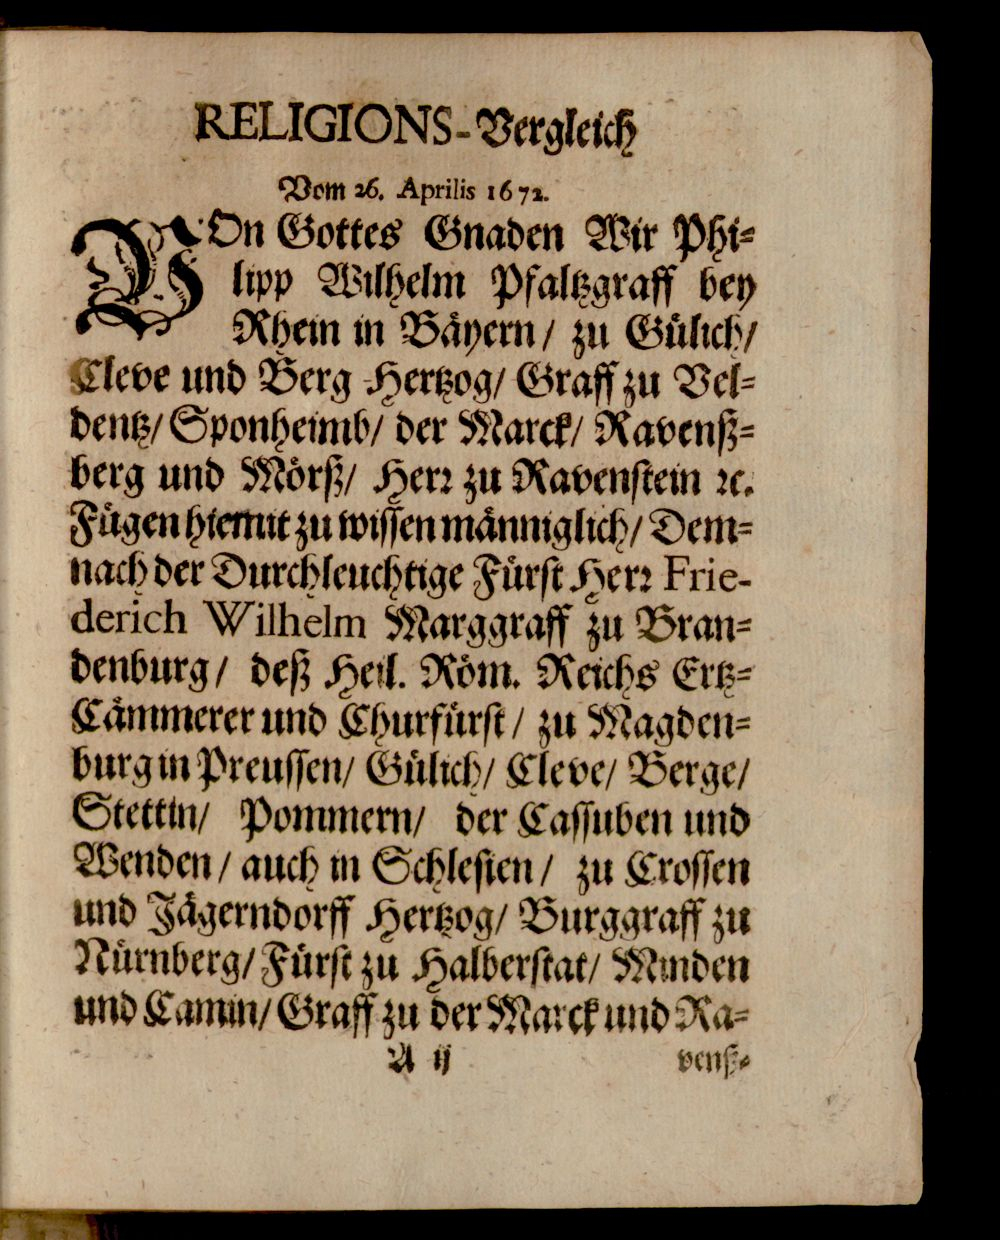 RELIGIONS-Vergleich
Vom 26. Aprilis 1672.
VOn Gottes Gnaden Wir Phi-
lipp Wilhelm Pfaltzgraff bey
Rhein in Bäyern/ zu Gülich/
Cleve und Berg Hertzog/ Graff zu Vel-
dentz/ Sponheimb/ der Marck/ Ravenß-
berg und Mörß/ Herr zu Ravenstein ꝛc.
Fügen hiemit zu wissen männiglich/ Dem-
nach der Durchleuchtige Fürst Herr Frie-
derich Wilhelm Marggraff zu Bran-
denburg/ deß Heil. Röm. Reichs Ertz-
Cämmerer und Churfürst/ zu Magden-
burg in Preussen/ Gülich/ Cleve/ Berge/
Stettin/ Pommern/ der Cassuben und
Wenden/ auch in Schlesien/ zu Crossen
und Jägerndorff Hertzog/ Burggraff zu
Nürnberg/ Fürst zu Halberstat/ Minden
und Camin/ Graff zu der Marck und Ra-
A ij venß-